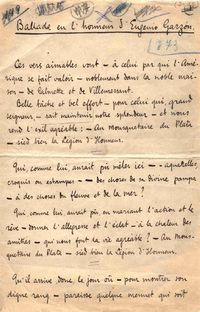 Ballade en l'honneur d'Eugenio Garzón.
Ces vers aimables vont — à celui par qui l'Amé-
rique se fait valoir — noblement dans la noble mai-
son — de Calmette et de Villemessant.
Belle tâche et bel effort — pour celui qui, grand
seigneur, — sait maintenir notre splendeur — et nous
rend l'exil agréable : — Au Mousquetaire du Plata
— sied bien la Légion d'Honneur.
Qui, comme lui, aurait pu mêler ici — aquarelles,
croquis ou estampes — des choses de sa divine pampa
— à des choses du fleuve et de la mer ?
Qui comme lui aurait pu, en mariant l'action et le
rêve — donner l'allégresse et l'éclat — à la chaleur des
amitiés — qui nous font la vie agréable ? — Au Mous-
quetaire du Plata — sied bien la Légion d'Honneur.
Qu'il arrive donc le jour où — pour montrer son
digne rang — paraisse quelque mernet qui soit